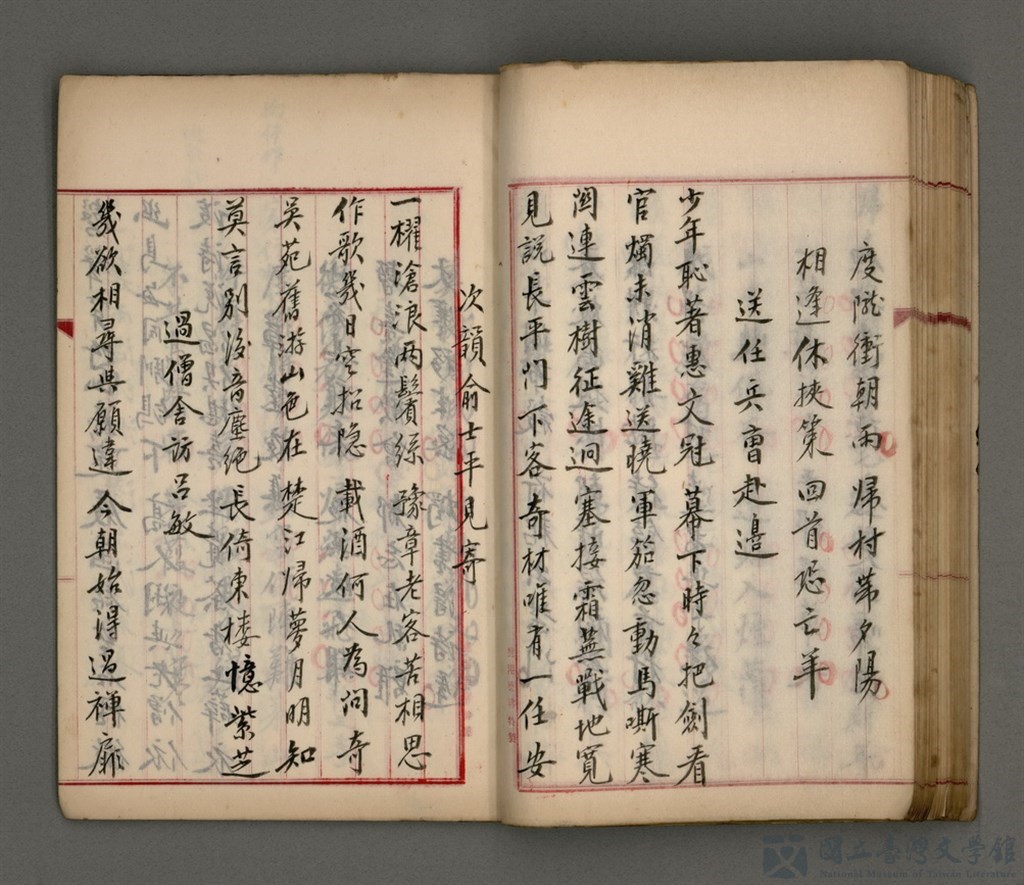 度隴衝朝雨歸村帶夕陽
相逢休挾策回首恐亡羊
送任兵曹赴邊
少年恥著惠文冠幕下時々把劍看
官燭未消雞送曉軍笳忽動馬嘶寒
関連雲樹征途迥塞接霜蕪戰地寬
見説長平門下客奇材唯有一任安
次韻俞士平見寄
一櫂滄浪两鬢絲豫章老客苦相思
作歌幾日空招隐載酒何人為問奇
吳苑舊游山色在楚江歸夢月明知
莫言別後音塵绝長倚東楼憶紫芝
過僧舍訪呂敏
幾欲相尋與願違今朝始得過禅扉
國立臺灣文學館
National Museum of Taiwan Literature